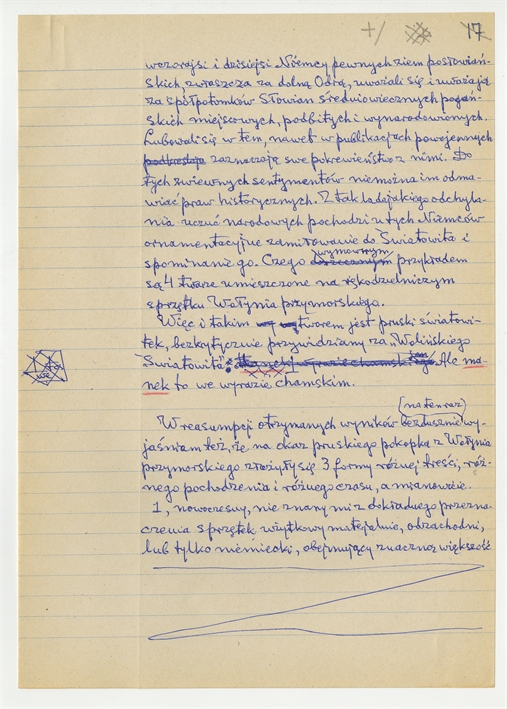 +/ 17
wczorajsi i dzisiejsi Niemcy pewnych ziem posłowiań-
skich, zwłaszcza za dolną Odrą, uważali się i uważają
za spółpotomków Słowian średniowiecznych pogań-
skich miejscowych, podbitych i wynarodowionych.
Lubowali się w tem, nawet w publikacjach powojennych
podkreślają zaznaczają swe pokrewieństwo z nimi. Do
tych zwiewnych sentymentów niemożna im odma-
wiać praw historycznych. Z tak ladajakiego odchyla-
nia uczuć narodowych pochodzi u tych Niemców
ornamentacyjne zamiłowanie do Światowita i
wymownym
spominanie go. Czego przykładem
są 4 twarze umieszczone na rękodzielniczym
sprzętku Wołynia przymorskiego.
Więc i takim utworem jest pruski światowi-
tek, bezkrytycznie przywidziany za „Wolińskiego
Światowita”: Ale ma-
nek to we wyrazie chamskim.
(na ten raz)
W reasumpcji otrzymanych wyników bezdusznie wy-
jaśniam też, że na okaz pruskiego pokopka z Wołynia
przymorskiego złożyły się 3 formy różnej treści, róż-
nego pochodzenia i różnego czasu, a mianowicie.
1, nowoczesny, nie znany mi z dokładnego przezna-
czenia sprzętek użytkowy materjalnie, odzachodni,
lub tylko niemiecki, obejmujący znaczną większość